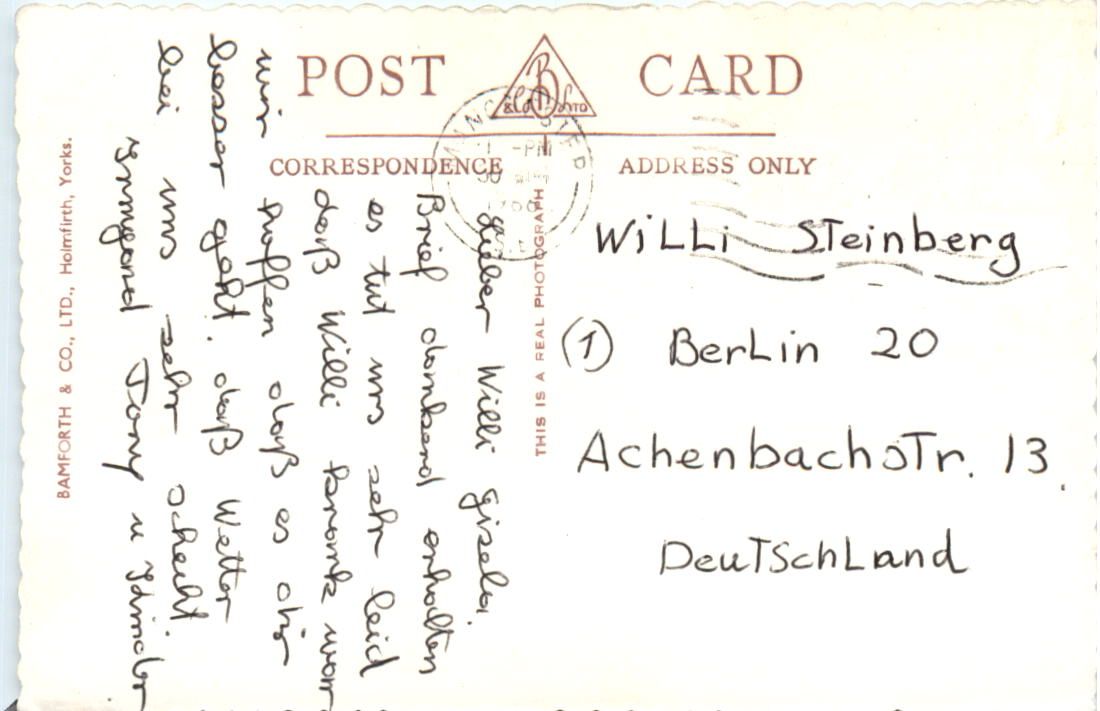 POST CARD
B & Co LTD
CORRESPONDENCE
ADDRESS ONLY
THIS IS A REAL PHOTOGRAPH
BAMFORTH & CO., LTD., Holmfirth, Yorks.
Lieber Willi Gisela.
Brief dankend erhalten
es tut uns sehr leid
daß Willi krank war
wir hoffen daß es dir
besser geht. daß Wetter
bei uns sehr schecht.
Irmgard Tony u Kinder
WiLLi STeinberg
(1) BerLin 20
AchenbachsTr. 13.
DeuTSchLand